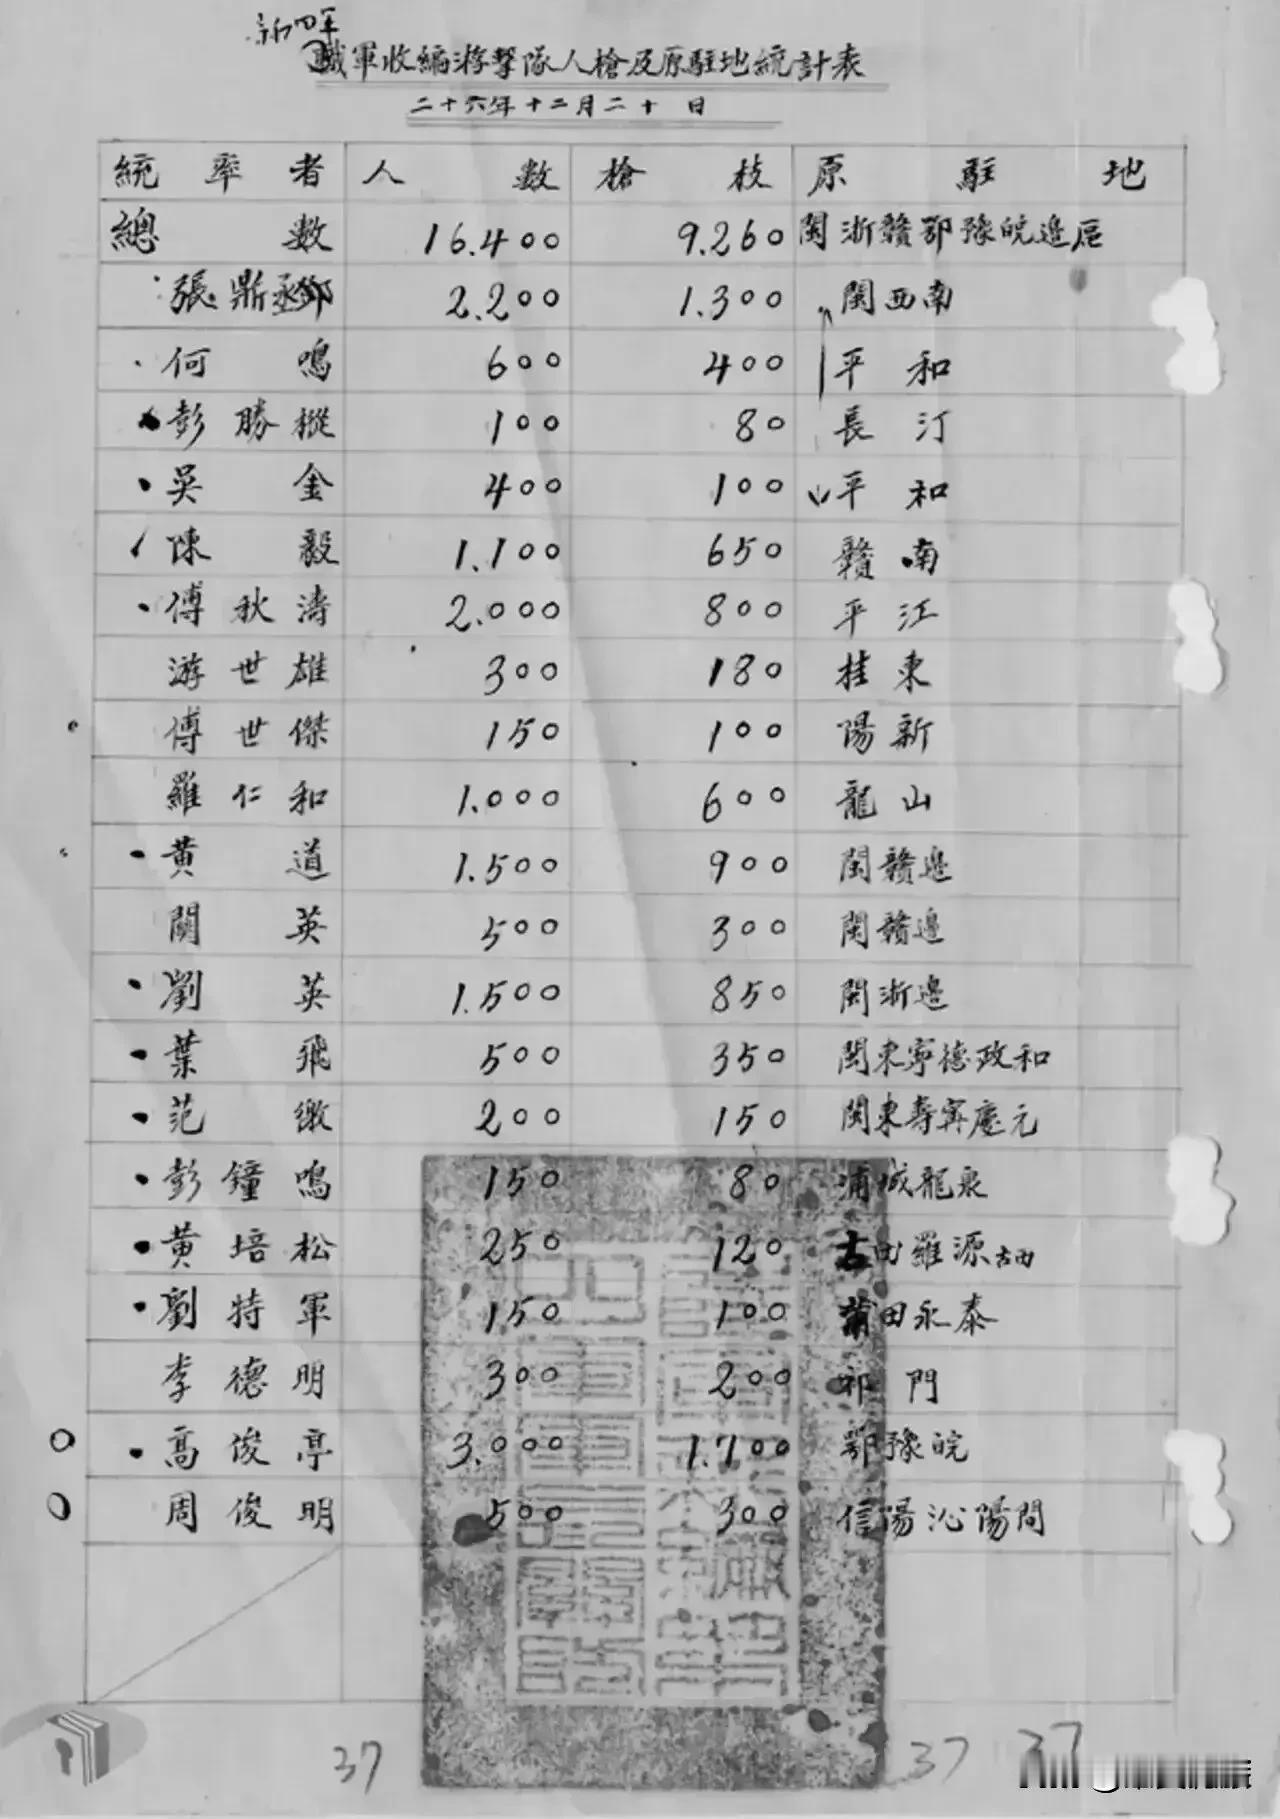 新四军
職軍收編游擊隊人槍及原駐地統計表
二十六年十二月二十日
統率者 人數 槍枝 原駐地
總數 16.400 9.260 閩浙贛鄂豫皖邊區
張鼎丞鄧 2.200 1.300 閩西南
何鳴 600 400 平和
彭勝樅 100 80 長汀
吳金 400 100 平和
陳毅 1.100 650 贛南
傅秋濤 2.000 800 平江
游世雄 300 180 桂東
傅世傑 150 100 陽新
羅仁和 1.000 600 龍山
黃道 1.500 900 閩贛邊
關英 500 300 閩贛邊
劉英 1.500 850 閩浙邊
葉飛 500 350 閩東寧德政和
范緻 200 150 閩東壽寧慶元
彭鐘鳴 150 80 浦城龍泉
黃培松 250 120 古田羅源古田
劉特軍 150 100 莆田永泰
李德明 300 200 祁門
高俊亭 3.000 1.700 鄂豫皖
周俊明 500 300 信陽沁陽間
37 37 37